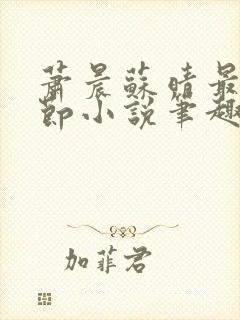 蕭晨蘇晴最
節小說筆趣
加菲君